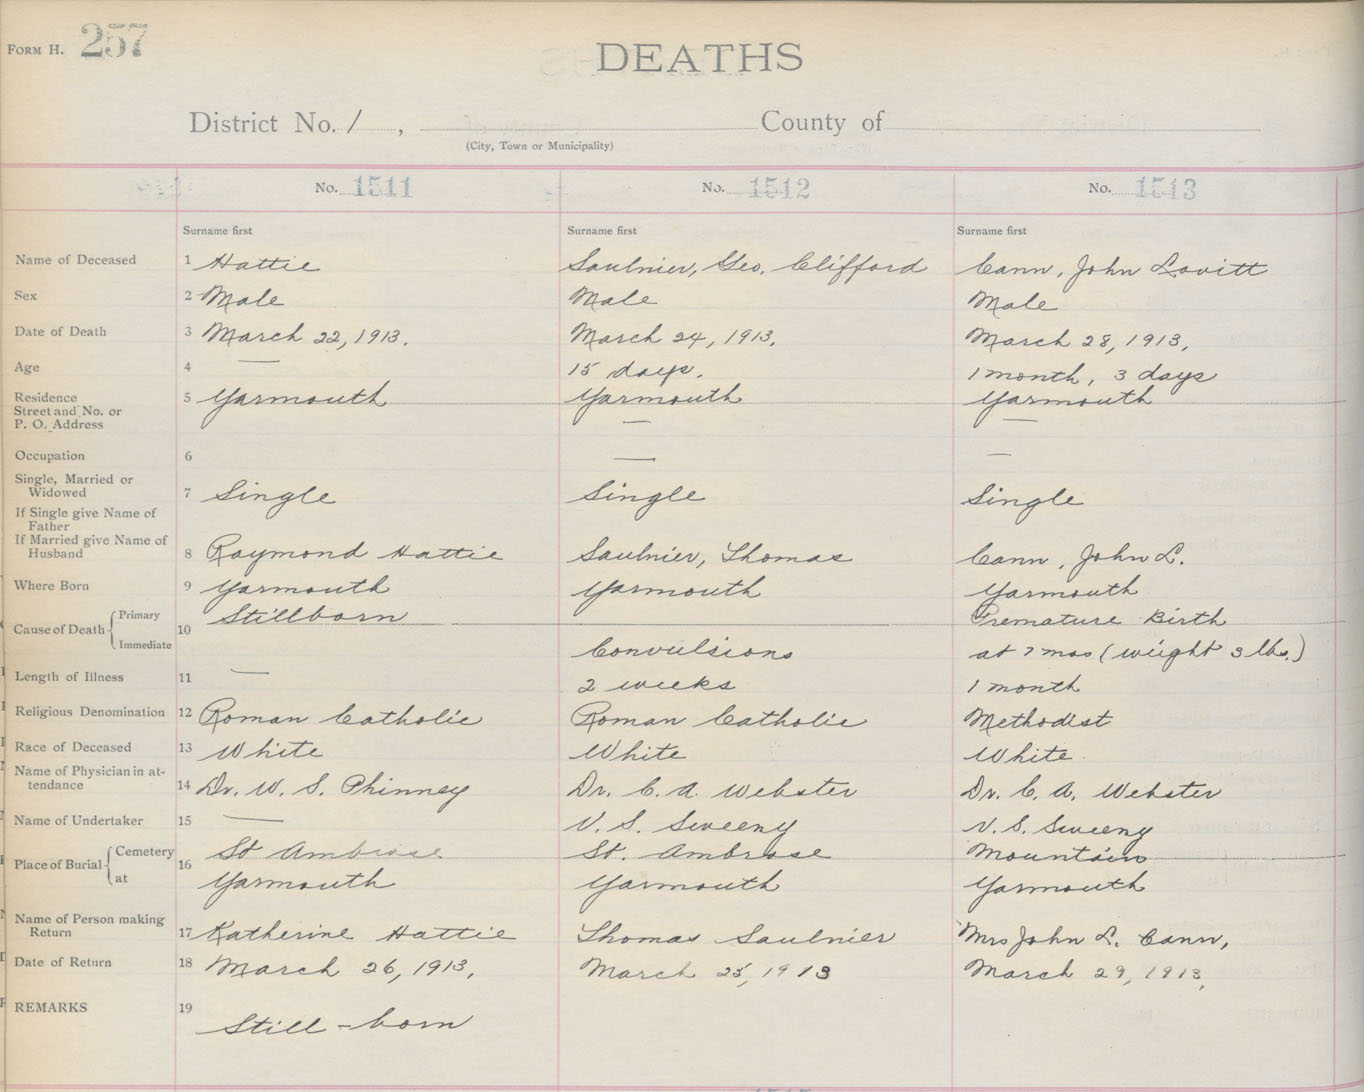 FORM H. 257
DEATHS
District No. 1 , County of
(City, Town or Municipality)
No. 1511 No. 1512 No. 1513
Surname first Surname first Surname first
Name of Deceased 1 Hattie Saulnier, Geo. Clifford Cann, John Lovitt
Sex 2 Male Male Male
Date of Death 3 March 22, 1913. March 24, 1913. March 28, 1913.
Age 4 — 15 days. 1 month, 3 days
Residence 5 Yarmouth Yarmouth Yarmouth
Street and No. or
P. O. Address — —
Occupation 6 — —
Single, Married or
Widowed 7 Single Single Single
If Single give Name of
Father
If Married give Name of
Husband 8 Raymond Hattie Saulnier, Thomas Cann, John L.
Where Born 9 Yarmouth Yarmouth Yarmouth
Cause of Death Primary 10 Stillborn Premature Birth
Immediate Convulsions at 7 mos (weight 3 lbs.)
Length of Illness 11 — 2 weeks 1 month
Religious Denomination 12 Roman Catholic Roman Catholic Methodist
Race of Deceased 13 White White White.
Name of Physician in at-
tendance 14 Dr. W. S. Phinney Dr. C. A. Webster Dr. C. A. Webster
Name of Undertaker 15 — V. S. Sweeny V. S. Sweeny
Place of Burial Cemetery 16 St Ambrose St. Ambrose Mountain
at Yarmouth Yarmouth Yarmouth
Name of Person making
Return 17 Katherine Hattie Thomas Saulnier Mrs John L. Cann,
Date of Return 18 March 26, 1913. March 25, 1913 March 29, 1913.
REMARKS 19 Still-born